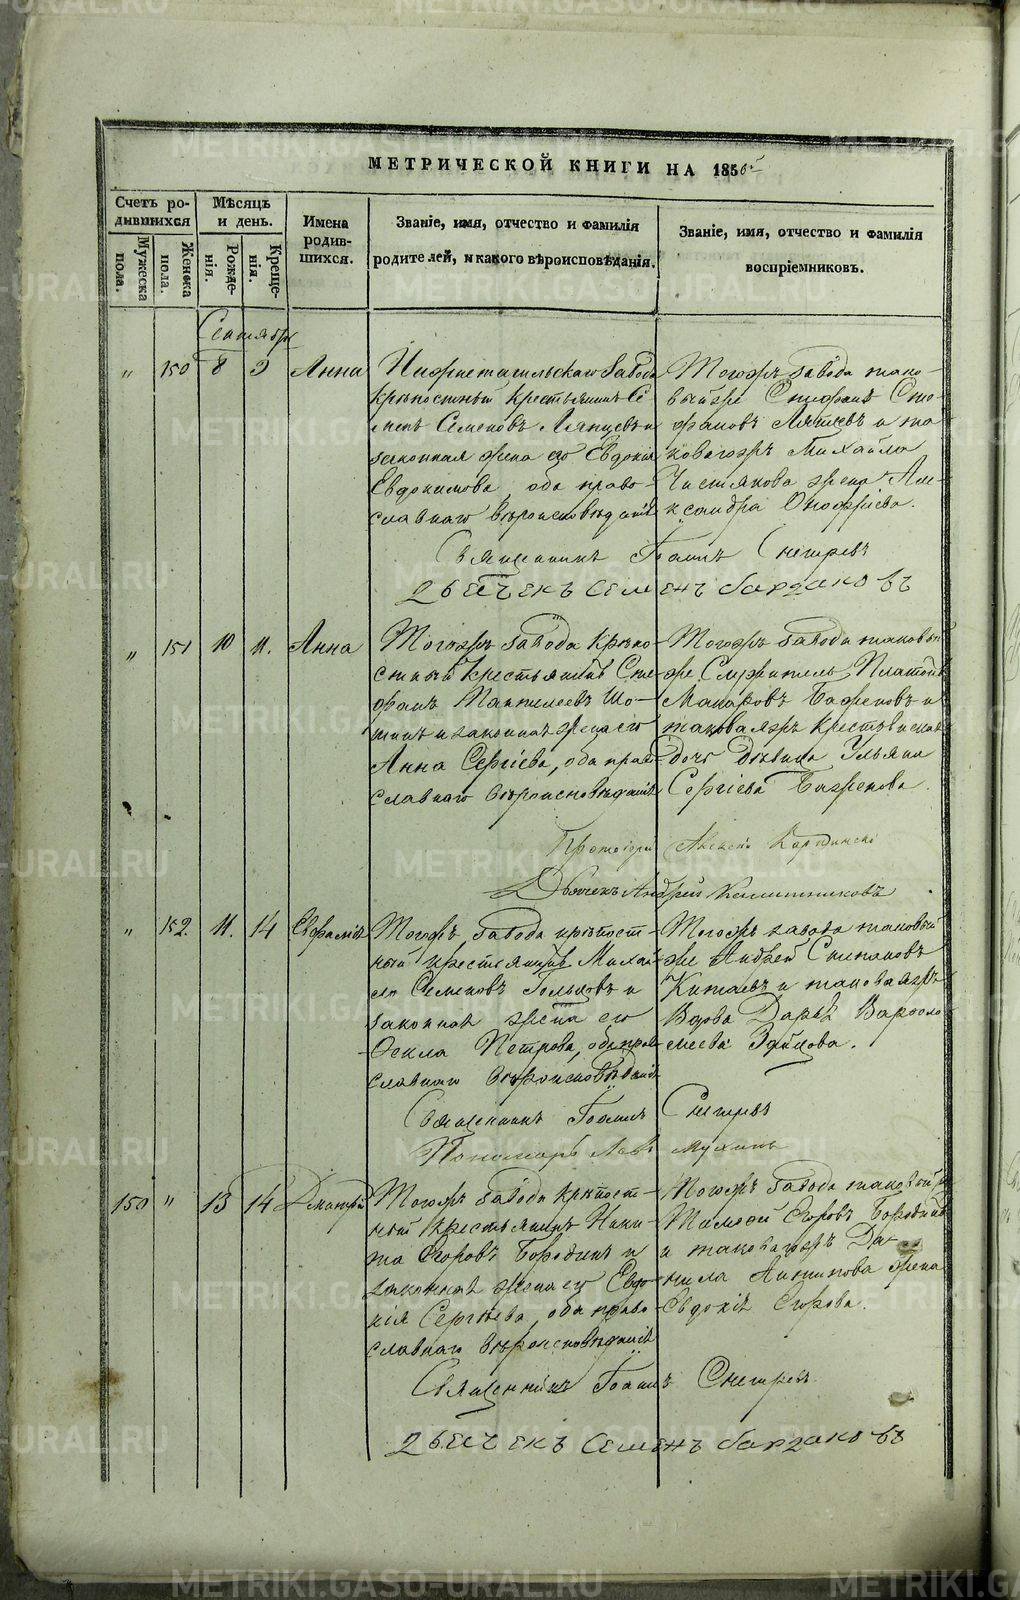 МЕТРИЧЕСКОЙ КНИГИ НА 1856й
Счетъ ро-
дившихся
Мужеска
пола.
Женска
пола.
Мѣсяцъ
и день.
Рожде-
нія.
Креще-
нія.
Имена
родив-
шихся.
Званіе, имя, отчество и фамилія
родителей, и какого вѣроисповѣданія.
Званіе, имя, отчество и фамилія
воспріемниковъ.
Сентябрь
" 150 8 9 Анна
Нижнетагильскаго завода
крѣпостный крестьянинъ Се
менъ Семеновъ и
законная жена его Евдокія
Евдокимова, оба право-
славнаго вѣроисповѣданія
Тогожъ завода тако-
выйже Стефанъ Сте-
фановъ и та
коваго жъ Михаила
Чистякова жена Але-
ксандра Онофріева.
Священникъ Іоаннъ Снегиревъ
Дьячекъ Семенъ
" 151 10 11. Анна
Тогожъ завода крѣпо
стный крестьянинъ Сте
фанъ Пантелеевъ Шо-
и законная жена его
Анна Сергіева, оба прав
славнаго вѣроисповѣданія
Тогожъ завода таковый
же Служитель Платонъ
Макаровъ Баженовъ и
таковаяжъ крестьянская
дочь дѣвица Ульяна
Сергіева Баженова.
Протоіерей
Дьячекъ Андрей Калинниковъ
" 152. 11. 14 Евфалія
Тогожъ завода крѣпост-
ный крестьянинъ Михаи
лъ Семеновъ Гольцовъ и
законная жена его
Ѳекла Петрова, оба прав
славнаго вѣроисповѣданія
Тогожъ завода таковый
же Андрей Степановъ
Китаевъ и таковаяжъ
Вдова Дарья Варѳоло
меева
Священникъ Іоаннъ Снегиревъ
Пономарь Левъ Мухинъ
150 " 13 14 Дмитрій
Тогожъ завода крѣпост-
ный крестьянинъ Ники-
та Егоровъ Бородинъ и
законная жена его Евдо-
кія Сергѣева, оба право
славнаго вѣроисповѣданія
Тогожъ завода таковой же
Тимофей Егоровъ Бородинъ
и таковагожъ Да-
нила Антипова жена
Евдокія Егорова.
Священникъ Іоаннъ Снегиревъ
Дьячекъ Семенъ
METRIKI.GASO-URAL.RU